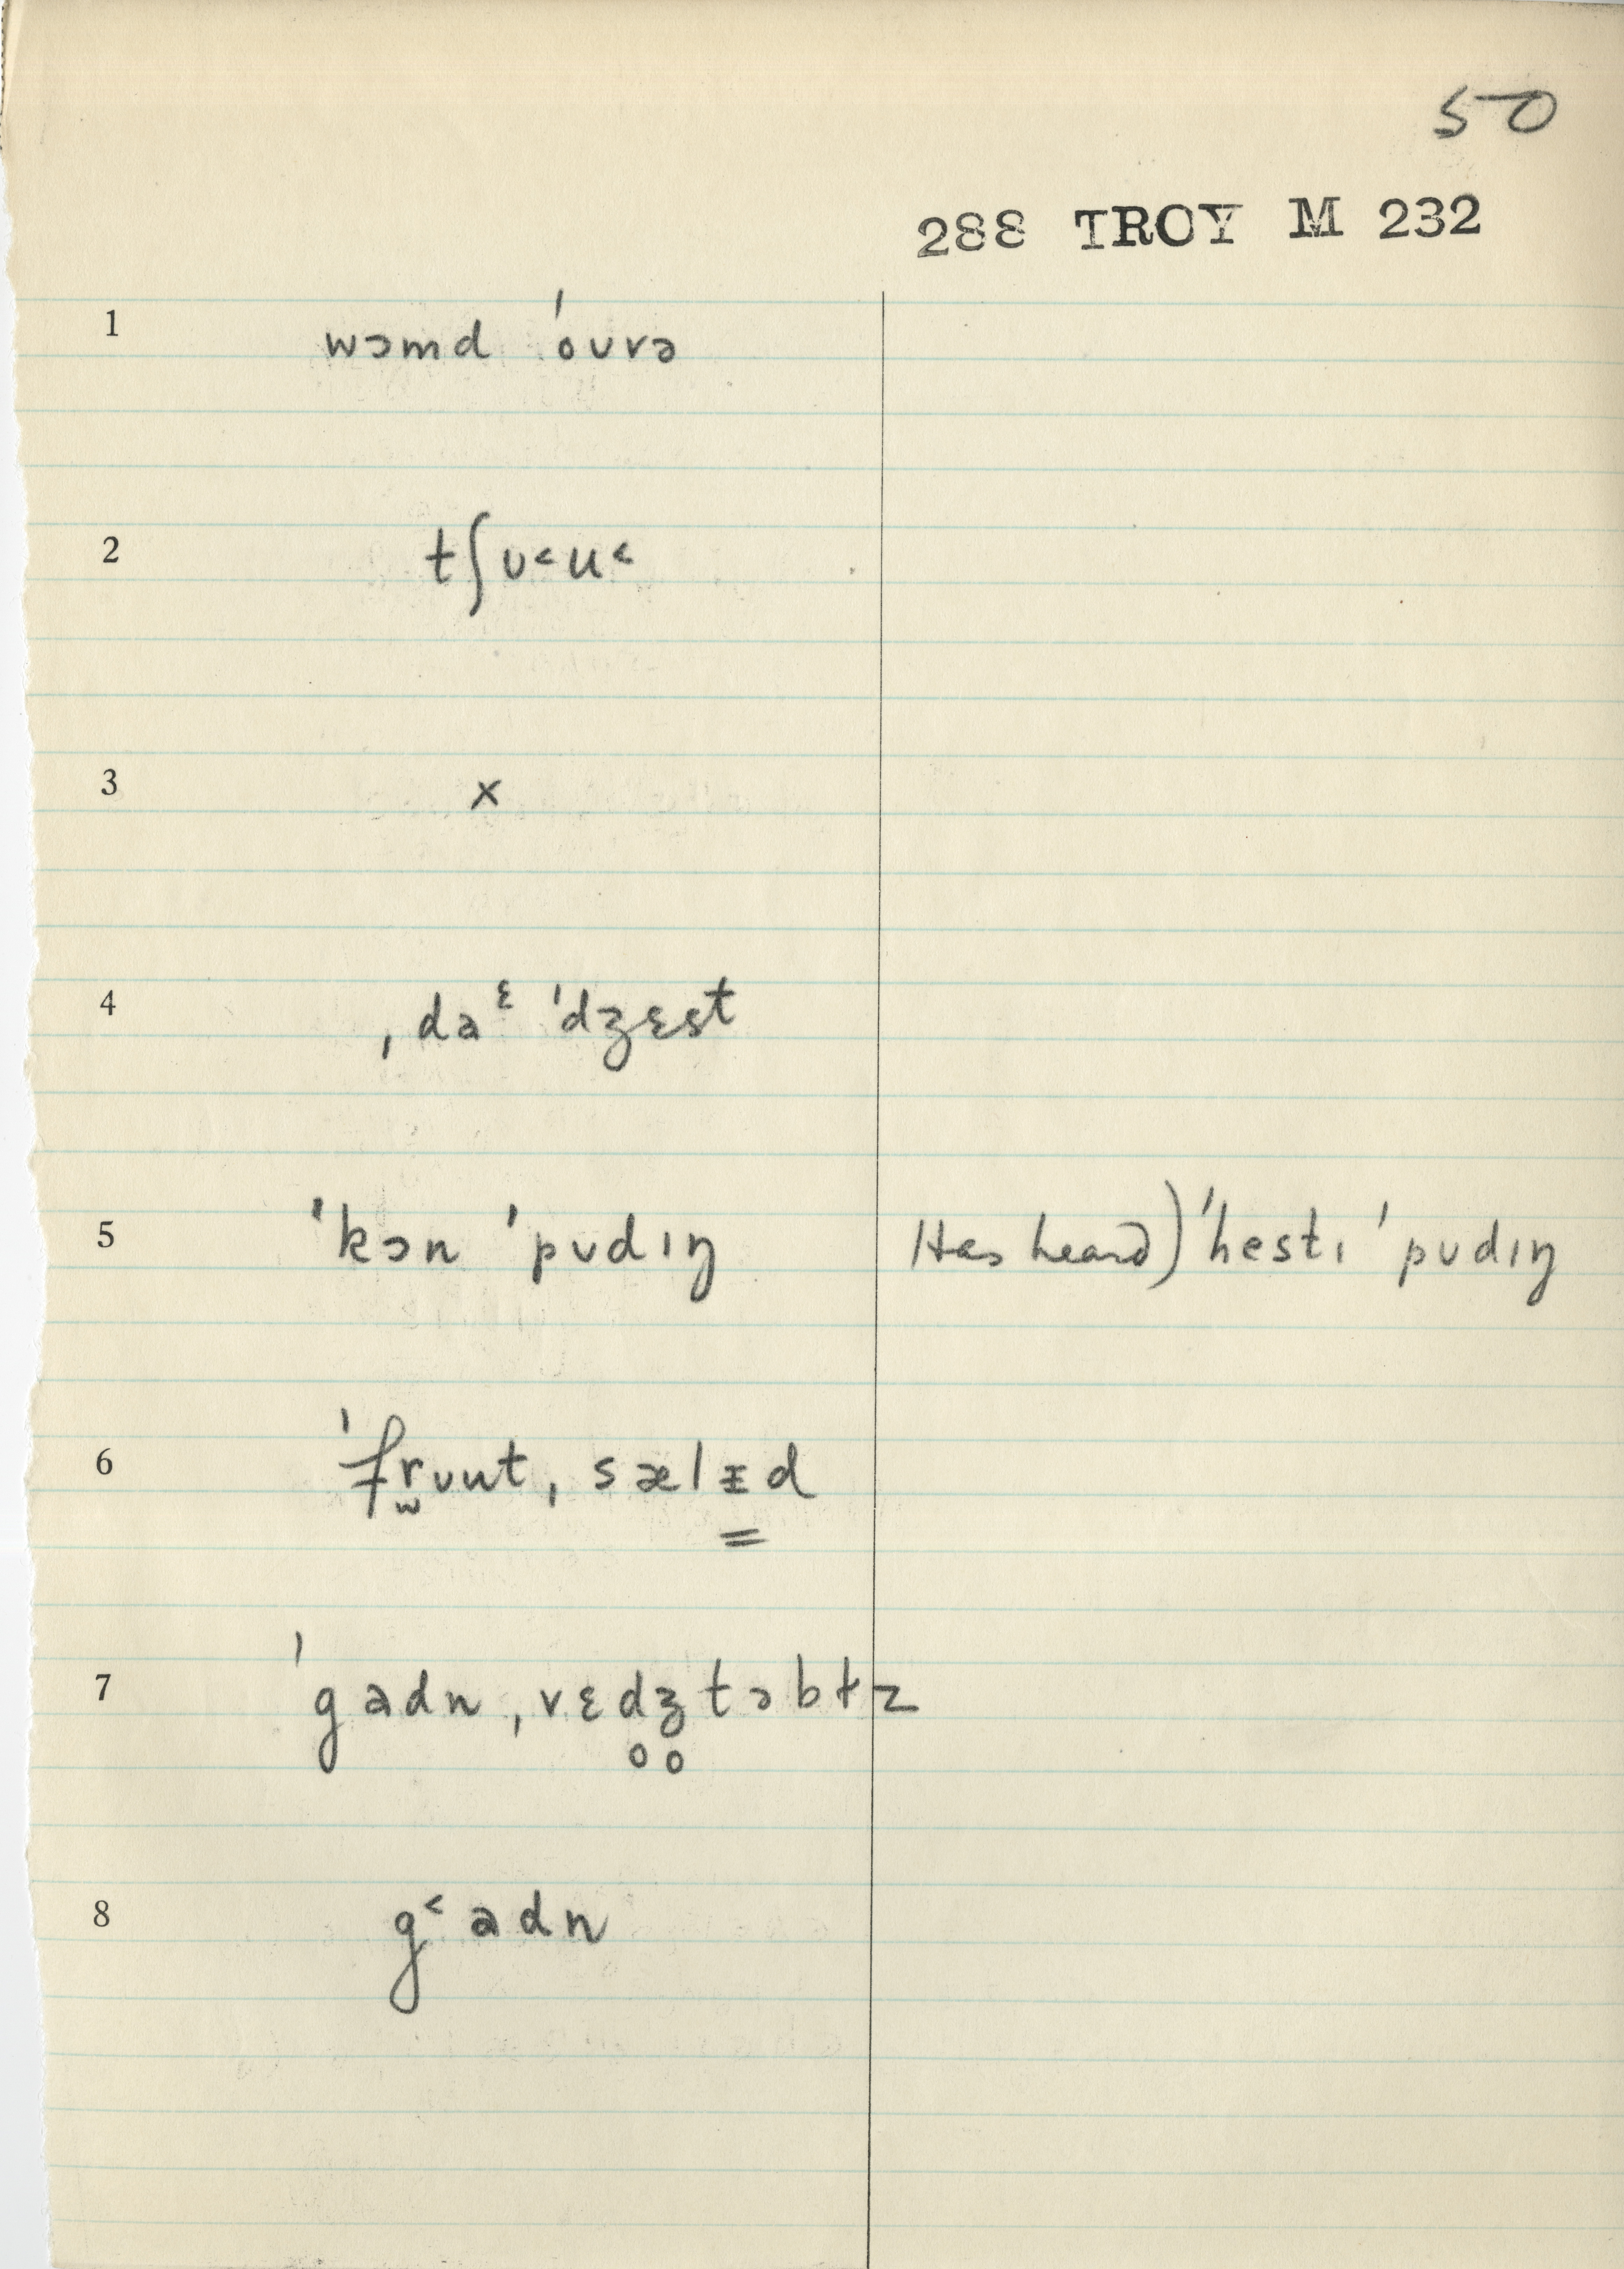 50
288 TROY M 232
1 wɔmd ˈoʊvrə
2 tʃʊ˂u˂
3 x
4 ˌdaᵋ ˈdʒɛst
5 ˈkɔn ˈpʊdɪŋ Has heard) ˈhestɪ ˈpʊdɪŋ
6 ˈfr̫ʊut ˌsælᵻd
7 ˈgadn ˌvɛd̥ʒ̥təbɫz
8 g˂adn